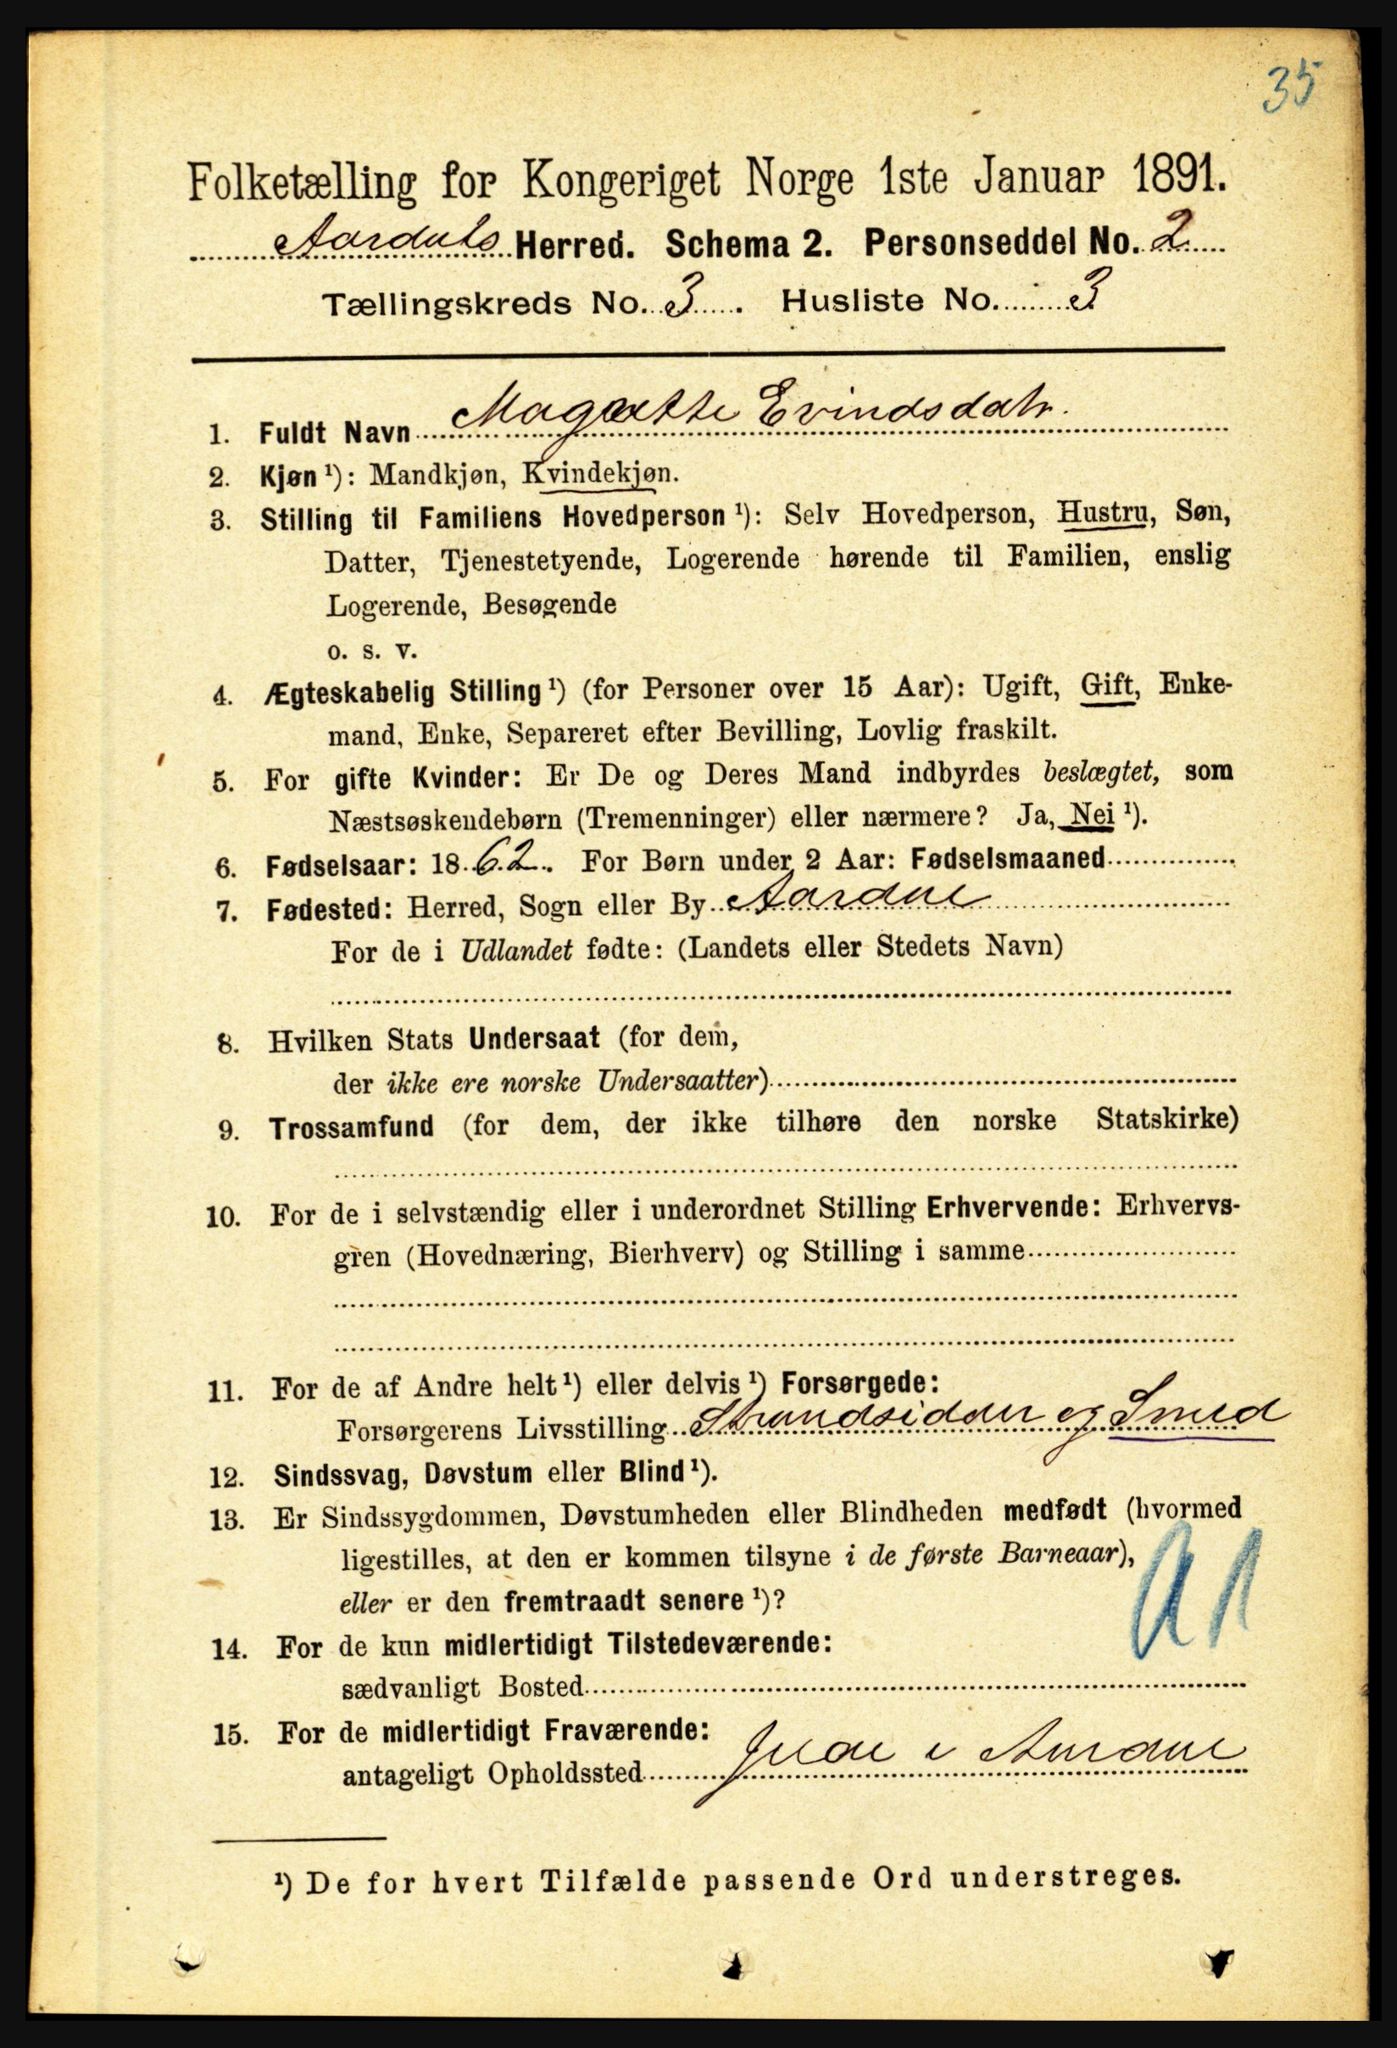 35
Folketælling for Kongeriget Norge 1ste Januar 1891.
Aardals Herred. Schema 2. Personseddel No. 2
Tællingskreds No. 3. Husliste No. 3
1. Fuldt Navn Magætte Evindsdatr.
2. Kjøn ¹): Mandkjøn, Kvindekjøn.
3. Stilling til Familiens Hovedperson ¹): Selv Hovedperson, Hustru, Søn,
Datter, Tjenestetyende, Logerende hørende til Familien, enslig
Logerende, Besøgende
o. s. v.
4. Ægteskabelig Stilling ¹) (for Personer over 15 Aar): Ugift, Gift, Enke-
mand, Enke, Separeret efter Bevilling, Lovlig fraskilt.
5. For gifte Kvinder: Er De og Deres Mand indbyrdes beslægtet, som
Næstsøskendebørn (Tremenninger) eller nærmere? Ja, Nei ¹).
6. Fødselsaar: 1862. For Børn under 2 Aar: Fødselsmaaned
7. Fødested: Herred, Sogn eller By Aardal
For de i Udlandet fødte: (Landets eller Stedets Navn)
8. Hvilken Stats Undersaat (for dem,
der ikke ere norske Undersaatter)
9. Trossamfund (for dem, der ikke tilhøre den norske Statskirke)
10. For de i selvstændig eller i underordnet Stilling Erhvervende: Erhvervs-
gren (Hovednæring, Bierhverv) og Stilling i samme
11. For de af Andre helt ¹) eller delvis ¹) Forsørgede:
Forsørgerens Livsstilling Strandsidder og Smed
12. Sindssvag, Døvstum eller Blind ¹).
13. Er Sindssygdommen, Døvstumheden eller Blindheden medfødt (hvormed
ligestilles, at den er kommen tilsyne i de første Barneaar),
eller er den fremtraadt senere ¹)?
14. For de kun midlertidigt Tilstedeværende:
sædvanligt Bosted
15. For de midlertidigt Fraværende:
antageligt Opholdssted i Aardal
¹) De for hvert Tilfælde passende Ord understreges.